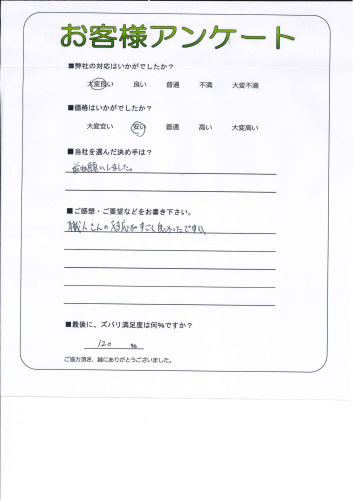 お客様アンケート
■弊社の対応はいかがでしたか?
大変良い 良い 普通 不満 大変不満
■価格はいかがでしたか?
大変安い 安い 普通 高い 大変高い
■当社を選んだ決め手は?
前も願いしました。
■ご感想・ご要望などをお書き下さい。
職人さんの対応がすごく良かったです。
■最後に、ズバリ満足度は何%ですか?
120 %
ご協力頂き、誠にありがとうございました。